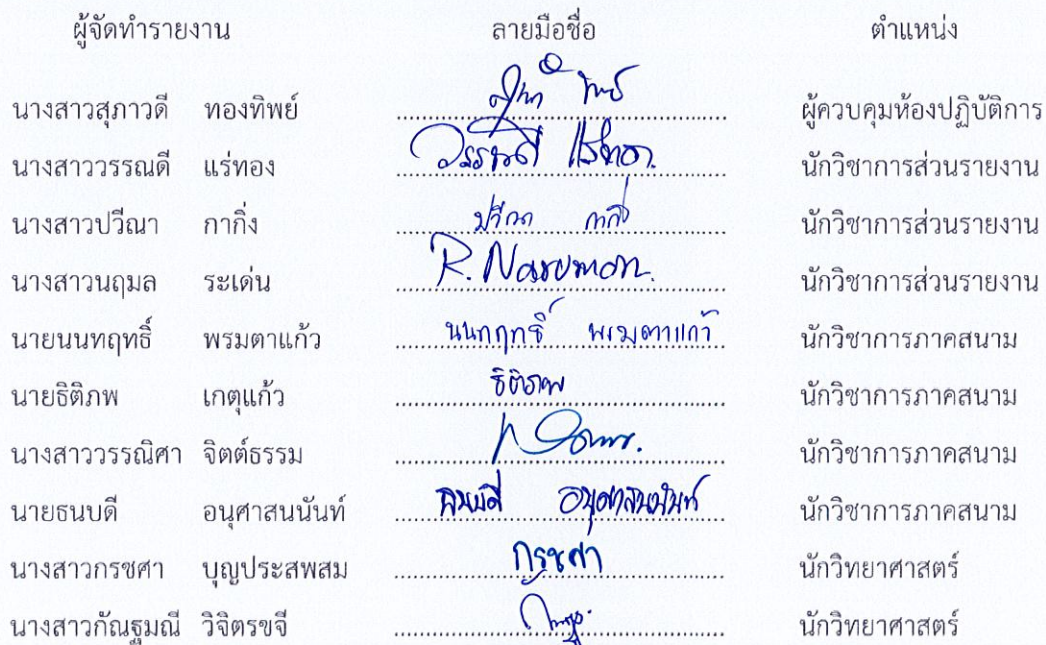 ผู้จัดทำรายงาน ลายมือชื่อ ตำแหน่ง
นางสาวสุภาวดี ทองทิพย์ ผู้ควบคุมห้องปฏิบัติการ
นางสาววรรณดี แร่ทอง วรรณดี แร่ทอง นักวิชาการส่วนรายงาน
นางสาวปวีณา กากิ่ง ปวีณา กากิ่ง นักวิชาการส่วนรายงาน
นางสาวนฤมล ระเด่น R. Naremon. นักวิชาการส่วนรายงาน
นายนนทฤทธิ์ พรมตาแก้ว นนทฤทธิ์ พรมตาแก้ว นักวิชาการภาคสนาม
นายธิติภพ เกตุแก้ว ธิติภพ นักวิชาการภาคสนาม
นางสาววรรณิศา จิตต์ธรรม นักวิชาการภาคสนาม
นายธนบดี อนุศาสนนันท์ ธนบดี อนุศาสนนันท์ นักวิชาการภาคสนาม
นางสาวกรชศา บุญประสพสม กรชศา นักวิทยาศาสตร์
นางสาวกัณฐมณี วิจิตรขจี นักวิทยาศาสตร์